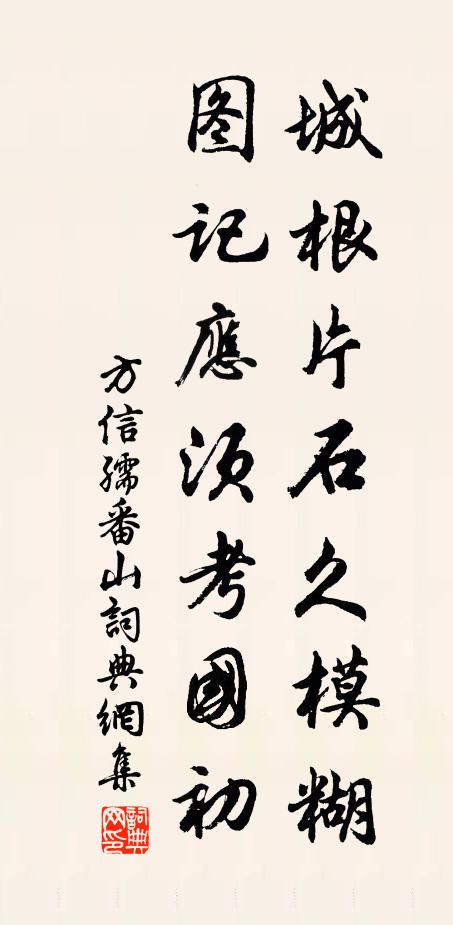 城根片石久模糊
图記應須考國初
方信孺番山詞典網集
詞典网印